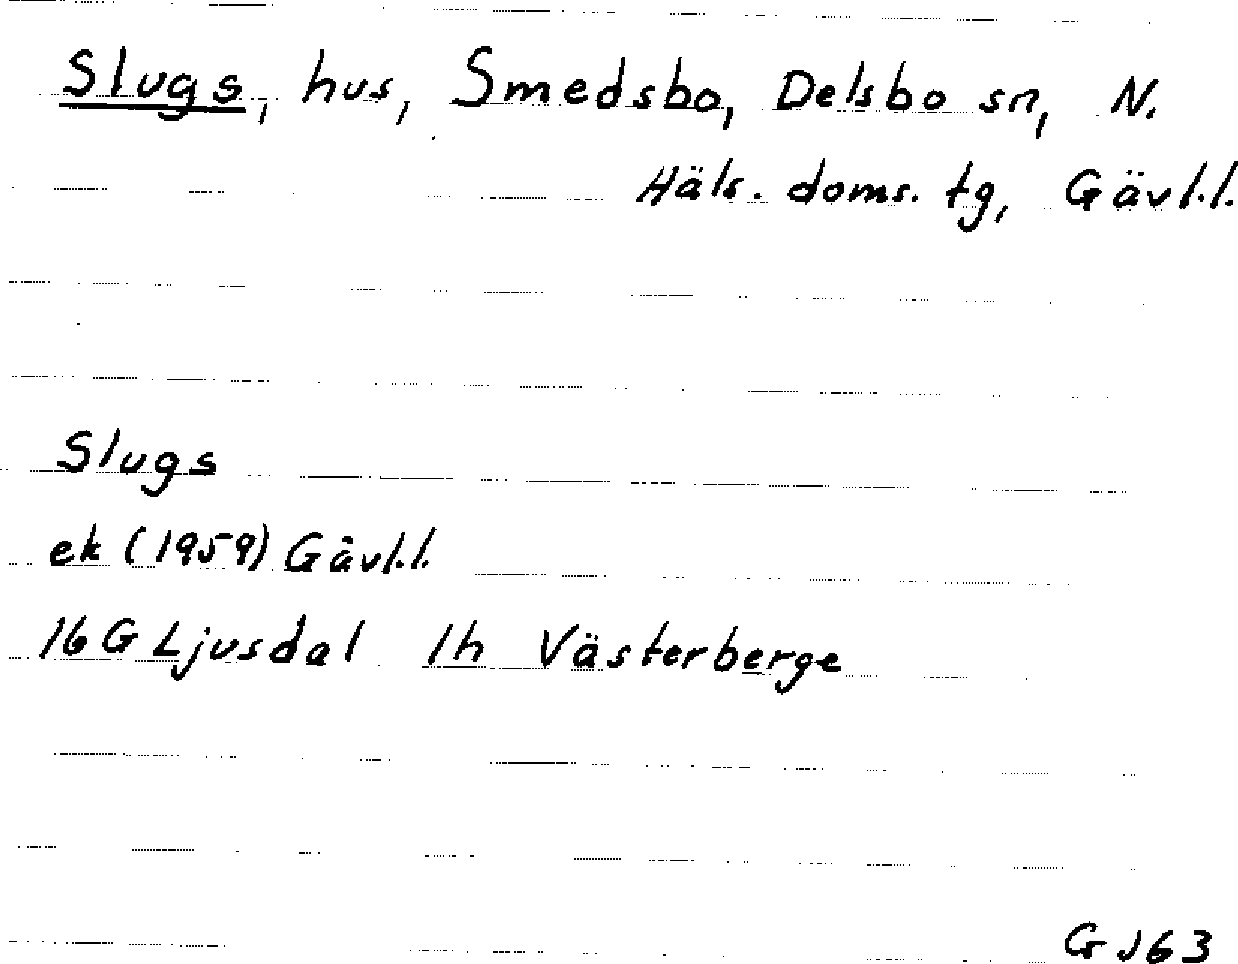 Slugs, hus, Smedsbo, Delsbo sn, N.
Häls. doms. tg, Gävl.l.
Slugs
ek (1959) Gävl.l.
16 G Ljusdal 1h Västerberge
GJ63